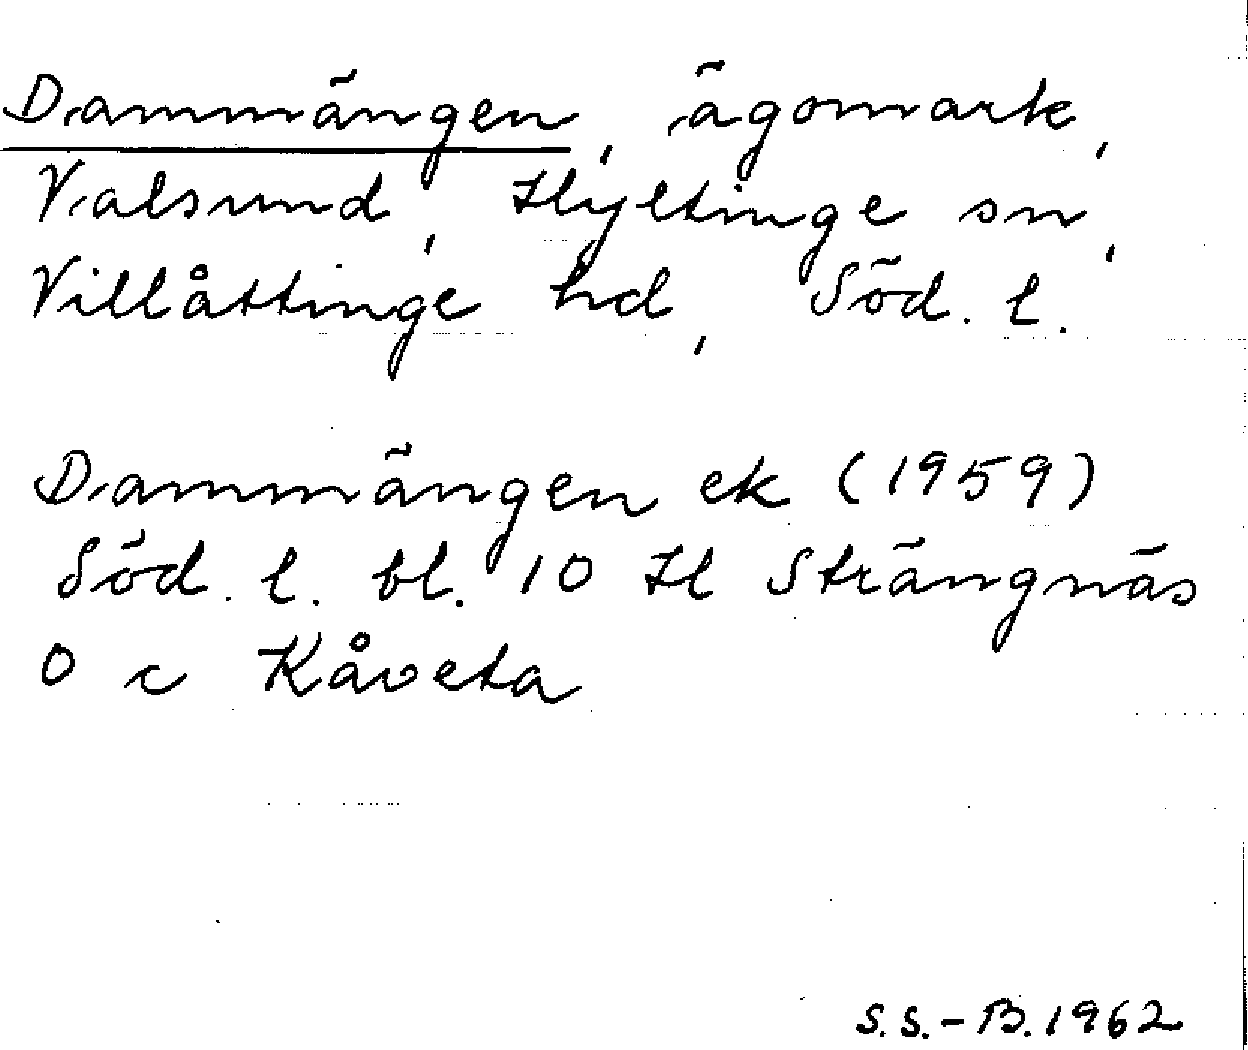 Dammängen, ägomark,
Valsund, Hyltinge sn,
Villåttinge hd, Söd. l.
Dammängen ek (1959)
Söd. l. bl. 10 H Strängnäs
O c Kåveta
S.S.-B. 1962